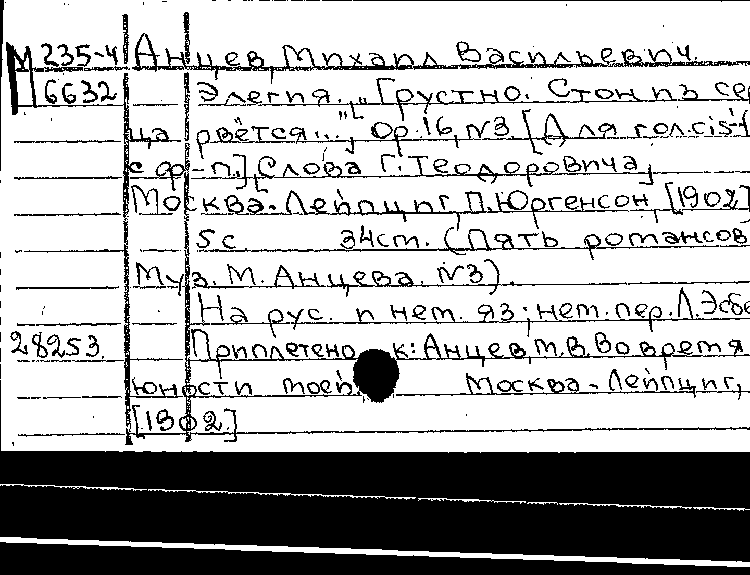 М 235-4 Анцев, Михаил Васильевич.
6632 Элегия. „Грустно. Стон из сер
ца рвётся...", Ор.16, №3. [Для гол. cis¹-f
с ф-п.] Слова Г. Теодоровича,
Москва-Лейпциг, П. Юргенсон, [1902]
5 с 34 ст. (Пять романсов
Муз. М. Анцева. №3).
На рус. и нем. яз; нем. пер. Л. Эсбе
28253 Приплетено к: Анцев, М.В. Во время
юности моей. Москва-Лейпциг,
[1902]